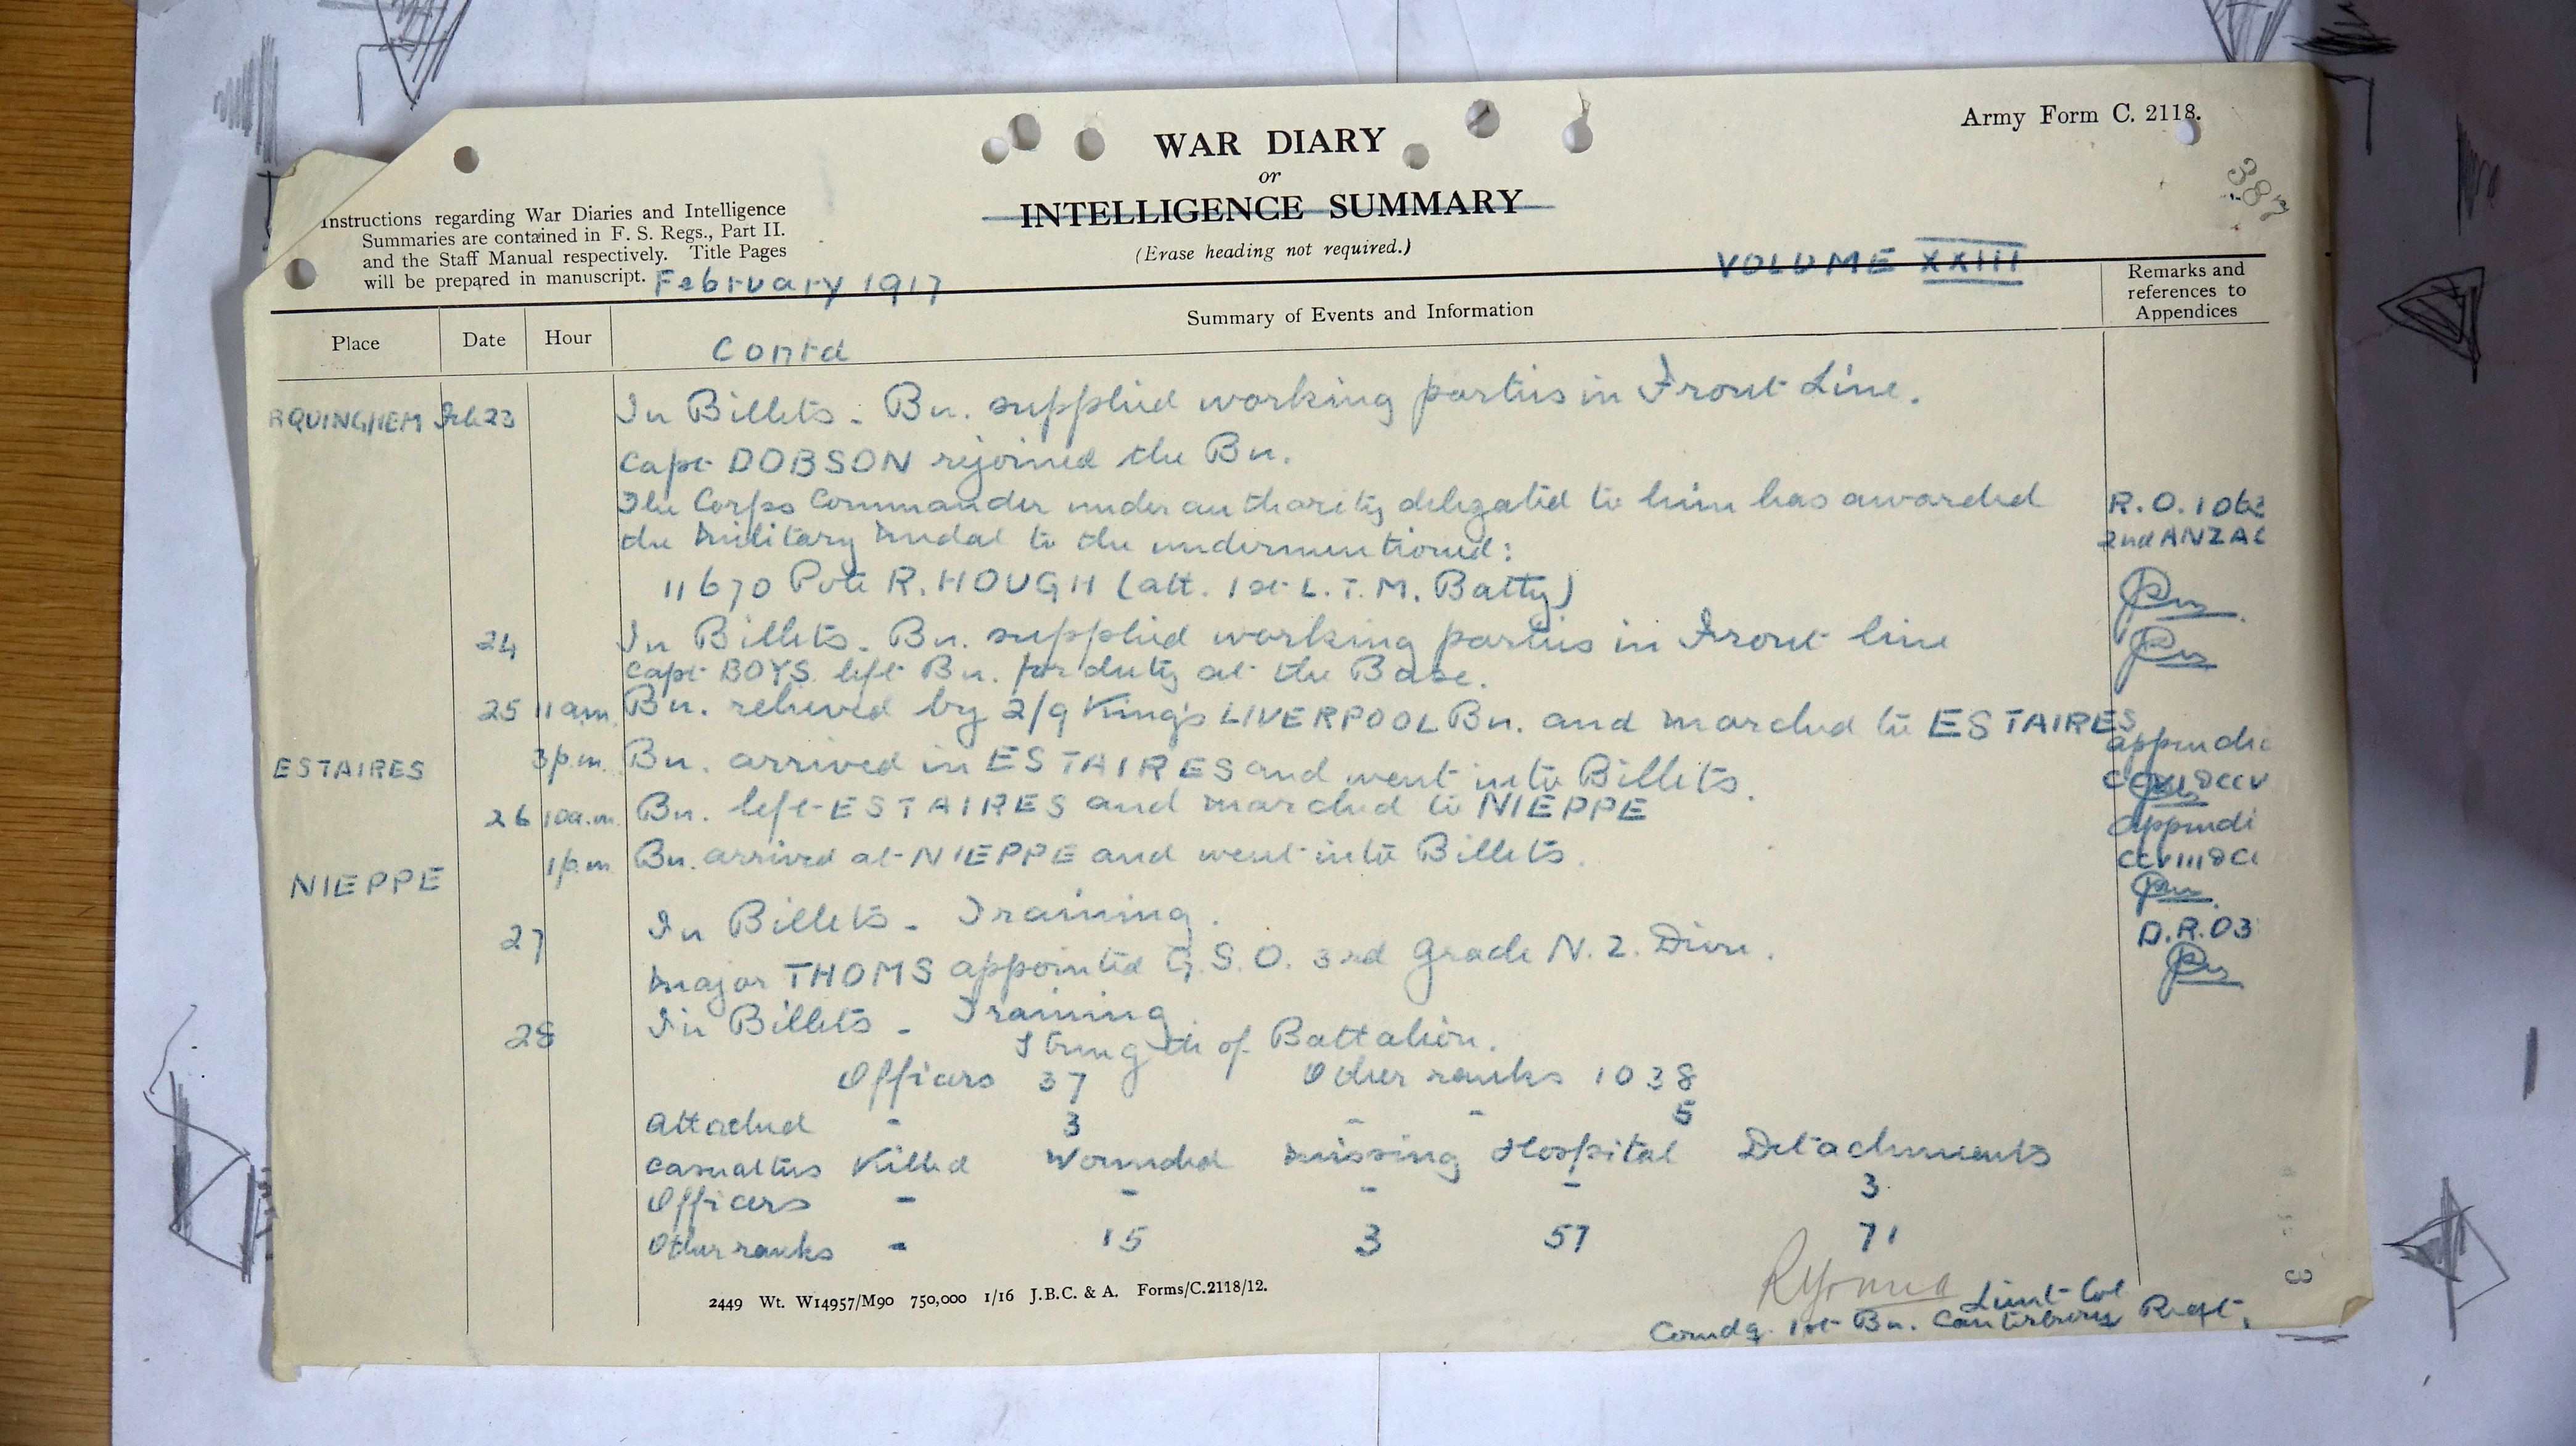 Army Form C. 2118.
WAR DIARY
or
INTELLIGENCE SUMMARY
(Erase heading not required.)
Instructions regarding War Diaries and Intelligence
Summaries are contained in F. S. Regs., Part II.
and the Staff Manual respectively. Title Pages
will be prepared in manuscript.
February 1917
VOLUME XXIII
Place Date Hour Summary of Events and Information Remarks and references to Appendices
Contd
RQUINGHEM Feb 23 In Billets - Bn. supplied working parties in Front Line.
Capt DOBSON rejoined the Bn.
The Corps Commander under authority delegated to him has awarded R.O. 1063
the Military Medal to the undermentioned: 2nd ANZAC
11670 Pvte R. HOUGH (att. 1st L.T.M. Batty)
24 In Billets - Bn. supplied working parties in Front line
Capt BOYS left Bn. for duty at the Base.
25 11 am. Bn. relieved by 2/9 King's LIVERPOOL Bn. and marched to ESTAIRES
ESTAIRES 3 p.m. Bn. arrived in ESTAIRES and went into Billets. appendic
26 10 a.m. Bn. left ESTAIRES and marched to NIEPPE
appendi
NIEPPE 1 p.m. Bn. arrived at NIEPPE and went into Billets. CCVIII & CC
27 In Billets - Training. D.R.O 3
Major THOMS appointed G.S.O. 3rd Grade N.Z. Divn.
28 In Billets - Training
Strength of Battalion.
Officers 37 Other ranks 1038
Attached - 3 - - 5
Casualties Killed Wounded Missing Hospital Detachments
Officers - - - - 3
Other ranks - 15 3 57 71
Lieut-Col
Comdg. 1st Bn. Canterbury Regt.
2449 Wt. W14957/M90 750,000 1/16 J.B.C. & A. Forms/C.2118/12.